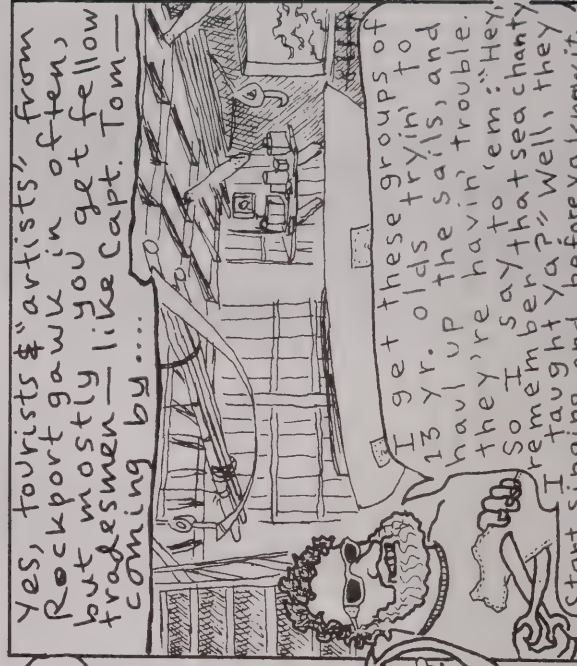 Yes, tourists & "artists" from
Rockport gawk in often,
but mostly you get fellow
tradesmen — like Capt. Tom —
coming by....
I get these groups of
13 yr. olds tryin' to
haul up the sails, and
they're havin' trouble.
So I say to 'em: "Hey,
remember that sea chanty
I taught ya?" Well, they
start singing and, before ya know it,